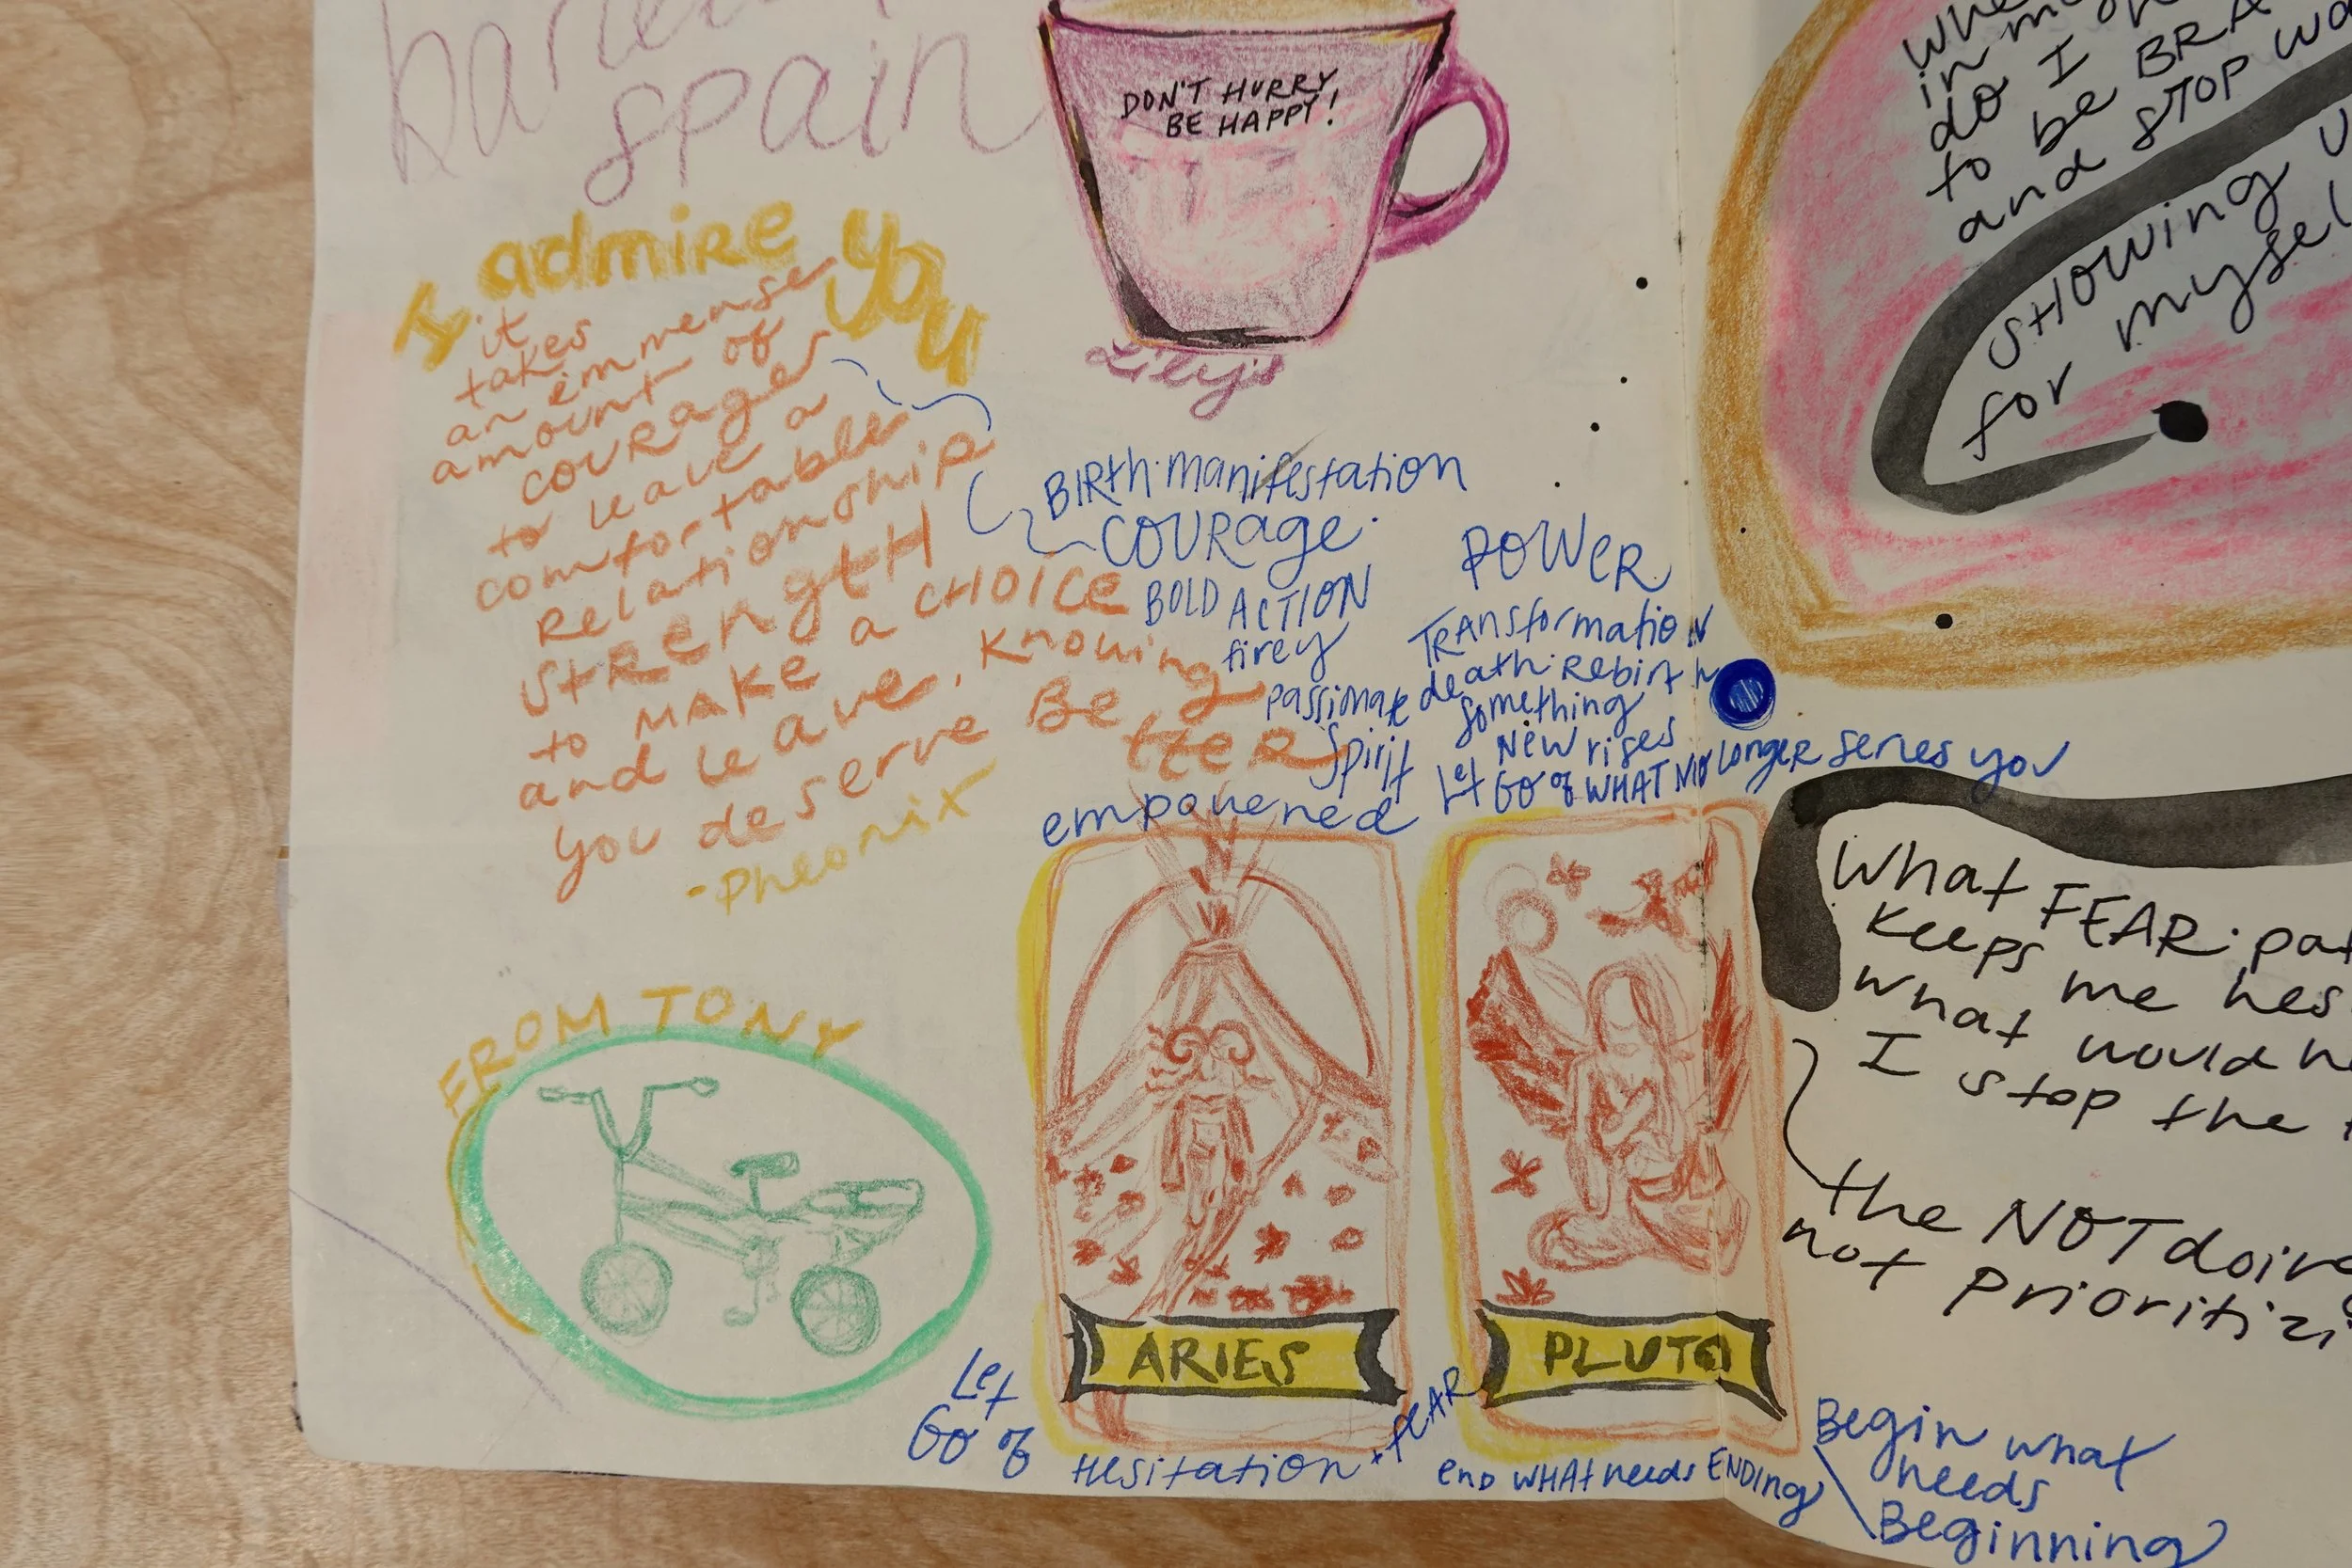 spain
DON'T HURRY
BE HAPPY!
Lily's
I admire you
it
takes
an immense
amount of
courage
to leave a
comfortable
Relationship
STRENGTH
to MAKE a CHOICE
and leave, knowing
you deserve Better
-Pheonix
BIRth·manifestation
COURage.
BOLD ACTION
firey
passionate
Spirit
empowered
POWER
TRAnsformation
death·Rebirth
something
New rises
Let GO of WHAT NO longer serves you
FROM TONY
ARIES
PLUTO
Let
GO of
Hesitation + FEAR
end WHAt needs ENDing
Begin what
needs
Beginning
do I
to be
and STOP
SHOWING
for
What FEAR·
keeps me
what would
I stop the
the NOT
not